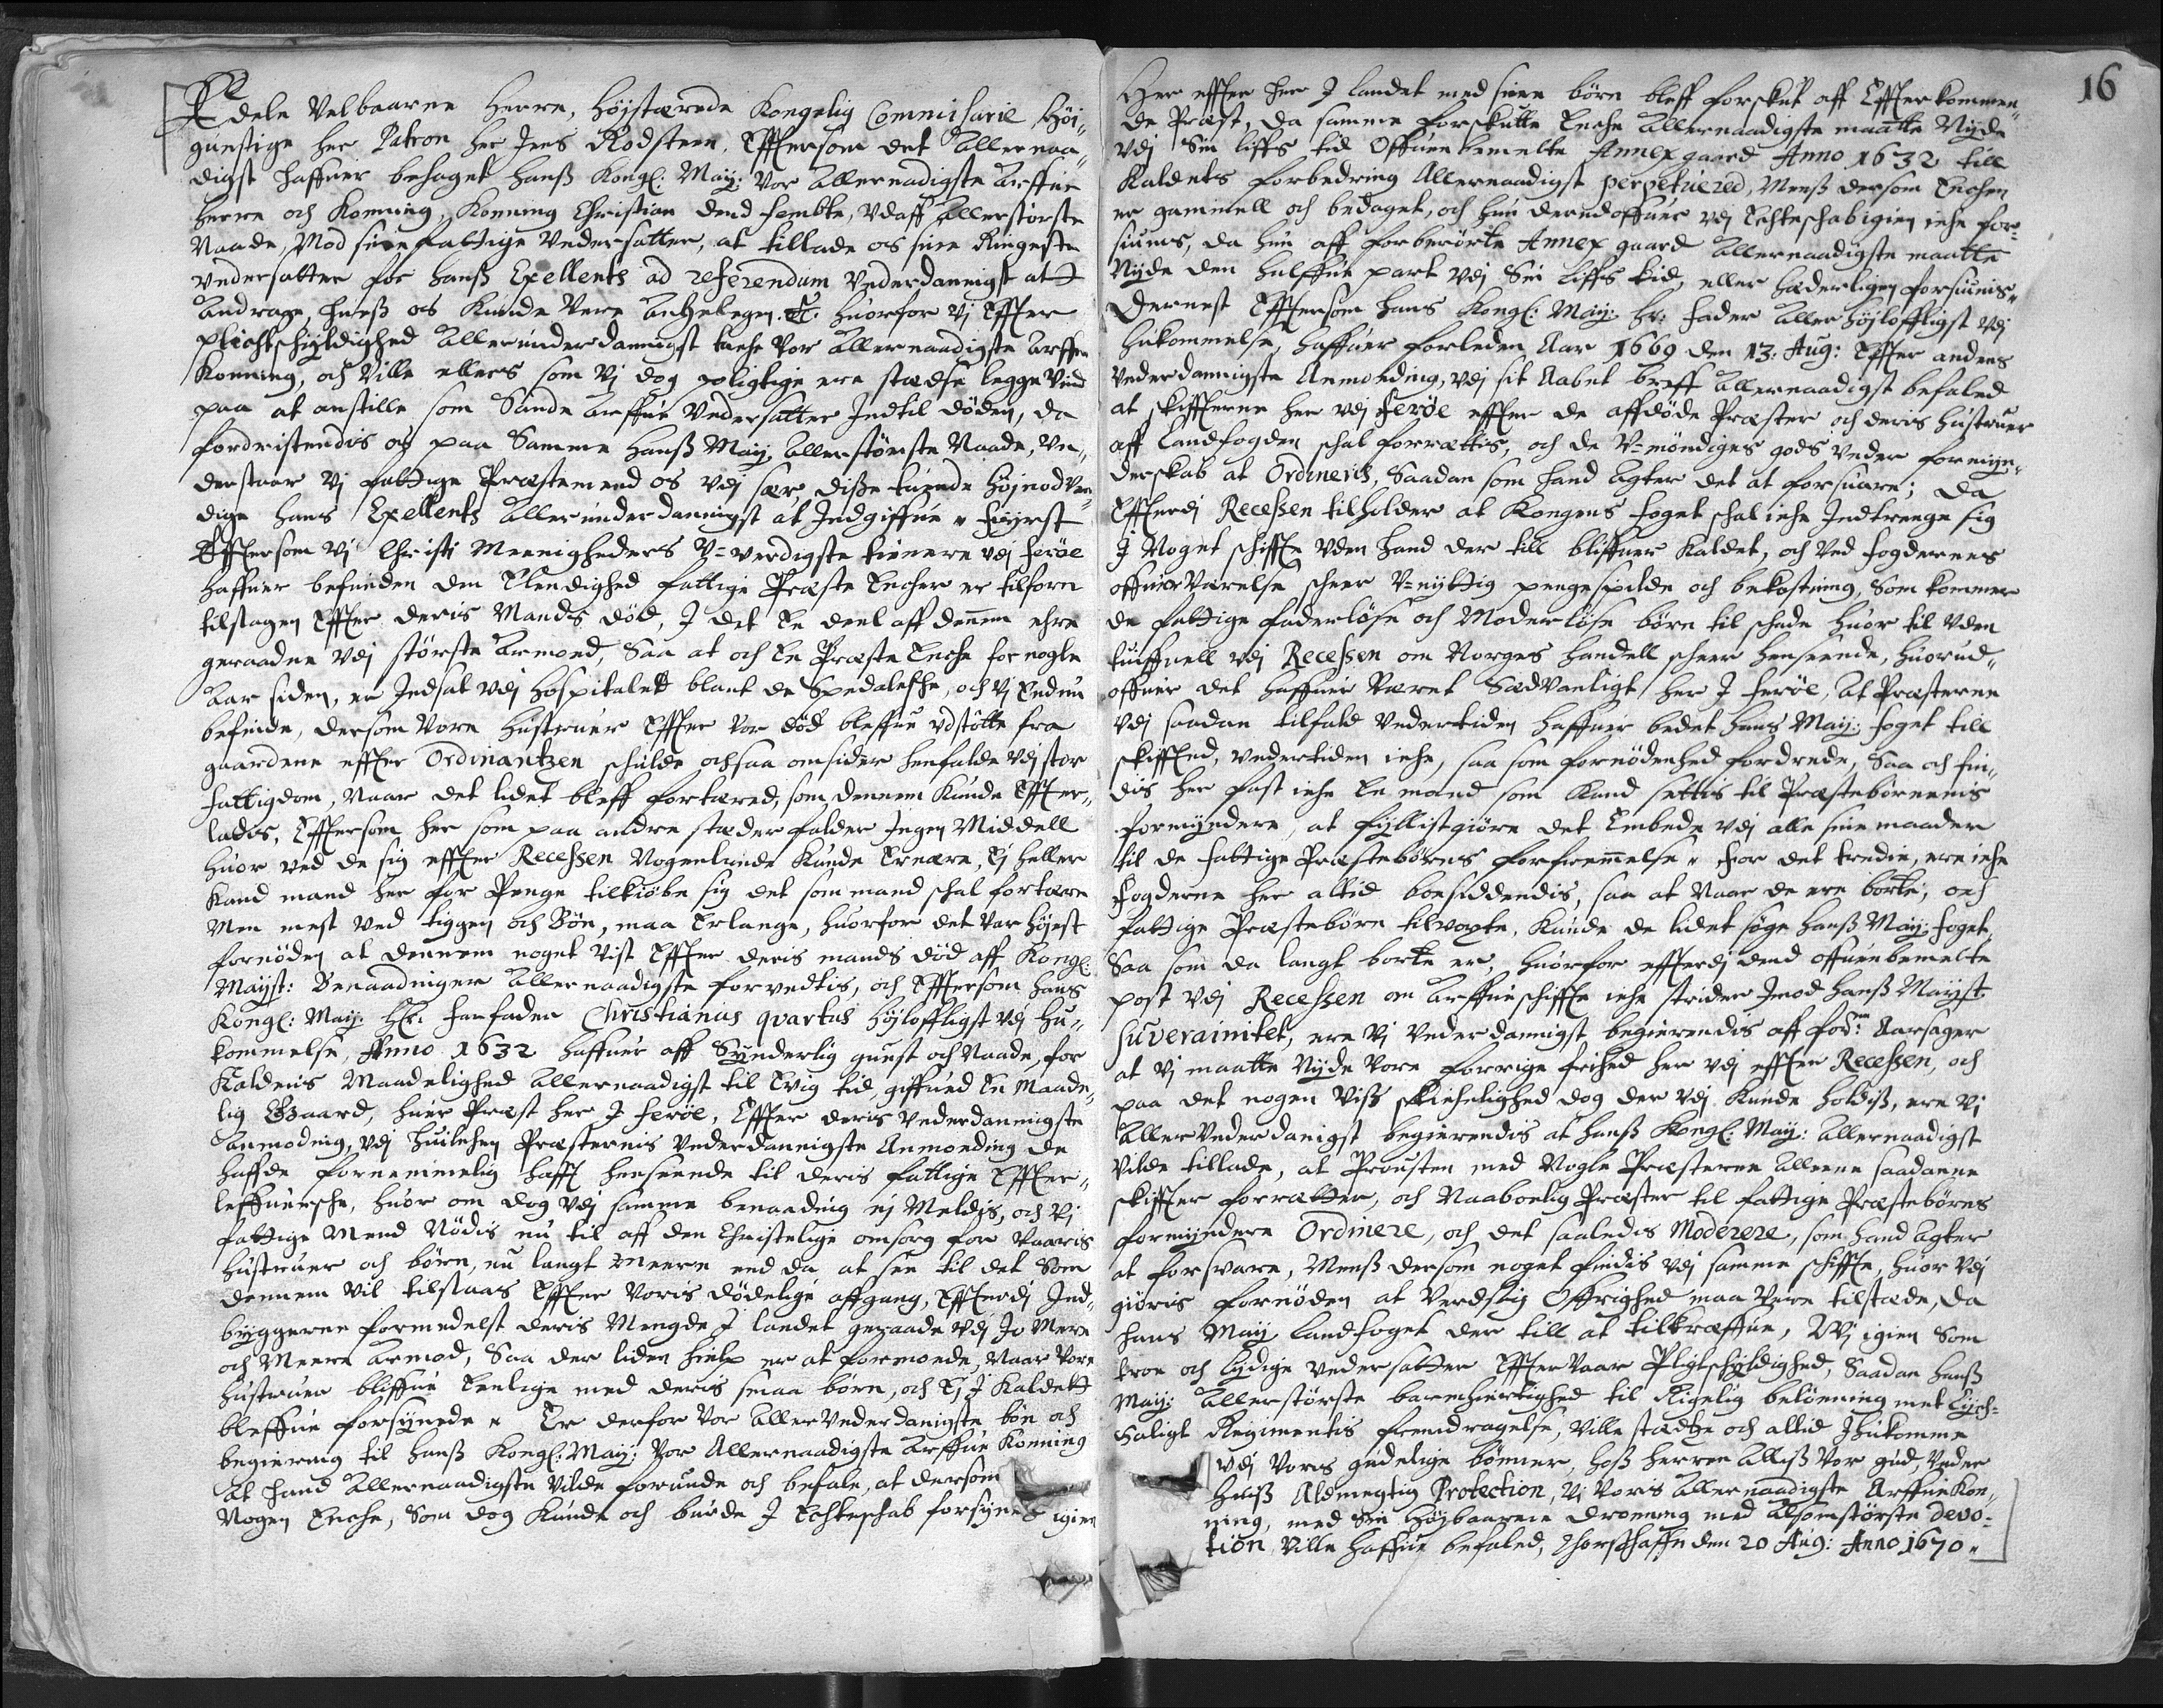 Edele Velbaarne Herre, Højstærede Kongelig Commissarie Høj„
gunstige Her Patron Her Jens Rodsteen, Efftersom det Allernaa„
digst haffuer behaget Hanß Kongl: May: Vor Allernadigste Arffue
Herre och Konning, Konning Christian dend Fembte, Udaff Allerstørste
Naade, Mod sine fattige Undersatter, at tillade os sine Ringeste
Undersatter for Hanß Exellents ad referendum Underdannigst att
Andrage, hueß os Kunde Vere Angelegen. &c. Huorfor Vj Effter
plichtschyldighed Allerunderdannigst tache Vor Allernaadigste Arffue
Konning, och Ville ellers som Vj dog pligtige ere stædse legge Vind
paa at anstille som Sande Arffue Undersatter Indtil døden, da
fordristendis os paa Samme Hanß May. Allerstørste Naade, Un„
derstaar Vj fattige Præstemend os Udj sær disse tuende Højnødven„
dige Hans Exellents Allerunderdannigst at Indgiffue „ Fyrst
Efftersom Vj Christi Meenigheders U=verdigste tienere Udj Ferøe
Haffuer befunden den Elendighed fattige Præste Encher er tilforn
tilstagen Effter deris Mands død, I det En deel aff dennem ehre
geraaden Udj største Armod, Saa at och En Præste Enche for nogle
Aar siden, er Indsat Udj Hospitalet blant de Spedalsche, och Vj Endnu
befinde, dersom Vore Hustruer Effter Vor død bleffue Udstøtte fra
gaardene effter Ordinantzen schulde ochsaa omsider henfalde Udj stor
fattigdom, Naar det lidet bleff fortæred, som dennem Kunde Effter„
ladis, Efftersom her som paa andre stæder falder Ingen Middell
Huor ved de sig effter Recessen Nogenlunde Kunde Ernære, Ej heller
Kand mand her for Penge tilkiøbe sig det som mand schal fortære
Men mest Ved tiggen och Bøn, maa Erlange, Huorfor det Var højest
fornøden at dennem noget Vist Effter deris mands død aff Kongl:
Mayst: Benaadninger Allernaadigste forundtis, och Efftersom Hans
Kongl: May: Hr: Farfader Christianus qvartus Højloffligst Udj Hu„
kommelse, Anno 1632 Haffuer aff Synderlig gunst och Naade, for
Kaldenis Maadelighed Allernaadigst til Evig tid, giffued En Maade„
lig Gaard, huer Præst her I Ferøe, Effter deris Underdannigste
Anmoding, Udj Huilchen Præsternis Underdannigste Anmoeding de
Haffde fornemmelig Hafft Henseende til deris fattige Effter„
leffuersche, Huor om dog Udj samme benaading ej Meldis, och Vj
fattige Mend Nødis nu til aff den Christelige omsorg for Vaaris
Hustruer och børn, nu langt Meere end da at see til det Som
dennem Vil tilstaas Effter Voris dødelige affgang, Effterdj Ind„
byggerne formedelst deris Mengde I landet geraade Udj Jo Mere
och Meere Armod, Saa der liden hielp er at formoede, Naar Vore
Hustruer bliffue Eenlige med deris smaa børn, och Ej I Kaldett
bleffue forsynede „ Er derfor Vor AllerUnderdanigste bøn och
begiering til Hanß Kongl: May: Vor Allernaadigste Arffue Konning
At Hand Allernaadigste Vilde forunde och befale, at dersom
Nogen Enche, Som dog Kunde och burde I Echteschab forsynes igien
16
Her effter her I landet med sine børn bleff forskut aff Effterkommen„
de Præst, da samme forskutte Enche Allernaadigste maatte Nyde
Udj Sin liffs tid Offuenbemelte Annexgaard Anno 1632 till
Kaldets forbedring Allernaadigst perpetuered, Menß dersom Enchen
er gammell och bedaget, och hun derudoffuer Udj Echteschab igien iche for„
siunis, da hun aff forberørte Annex gaard Allernaadigste maatte
Nyde den halffue part Udj Sin liffs tid, eller Hæderligen forsiunis„
Dernest Efftersom Hans Kongl: May: Hr: Fader Aller højloffligst Udj
Hukommelse, Haffuer forleden Aar 1669 den 13. Aug: Effter andens
Underdannigste Anmoeding, Udj sit Aabnt breff Allernaadigst befaled
at skiffterne her Udj Ferøe effter de affdøde Præster och deris Hustruer
aff Landfogden schal forrættis, och de U=mÿndiges gods Under formyn„
derskab at Ordineris, Saadan som Hand Agter det at forsuare; Da
Effterdj Recessen tilholder at Kongens Foget schal iche Indtrenge sig
I Noget schiffte Uden Hand der till bliffuer Kaldet, och Ved Fogdernes
offuerVærelse scheer U=nyttig pengespilde och bekostning, Som kommer
de fattige Faderløse och Moderløse børn til schade Huor til Uden
tuiffuell Udj Recessen om Norges Handell scheer Henseende, Huorud„
offuer det Haffuer Været Sædvanligt her I Ferøe, At Præsterne
Udj saadan tilfald Undertiden Haffuer bedet Hans May: Foget till
skiffted, Undertiden iche, saa som fornødenhed fordrede, Saa och fin„
dis her fast iche En mand som Kand settis til Præstebørnenis
formyndere, at fyllistgiøre det Embede Udj alle sine maader
til de fattige Præstebørns forfremmelse „ For det tredie, ere iche
Fogderne her altid boesiddendis, saa at Naar de ere borte, och
fattige Præstebørn tilvoxte, Kunde de lidet søge Hanß May: Foget,
Saa som da langt borte er, Huorfor effterdj dend offuenbemelte
post Udj Recessen om Arffueschiffte iche strider Imod Hanß Mayst:
Suverainitet, ere Vj Underdannigst begierendis aff fode Aarsager
at Vj maatte Nyde Vore forrige frihed her Udj effter Recessen, och
paa det nogen Viß skichelighed dog der Udj Kunde holdiß, ere Vj
AllerUnderdanigst begierendis at Hanß Kongl: May: Allernaadigst
Vilde tillade, at Prousten med Nogle Præsterne Alleene saadanne
skiffter forrætter, och Naaboelig Præster til fattige Præstebørns
formyndere Ordinere, och det saaledis Moderere, som Hand Agter
at forsvare, Menß dersom noget findis Udj samme schiffte, Huor Udj
giøris fornøden at Verdslig Øffrighed maa Vere tilstæde, da
Hans May Landfoget der till at tilkræffue, Vj igien Som
troe och lydige Undersatter Effter Vaar Pligtschyldighed, Saadan Hanß
May: Allerstørste barmhiertighed til Rigelig belønning met Lych=
saligt Regimentis fremdragelse, Ville stædtze och altid Ihukomme
Udj Voris gudelige bønner, Hoß Herren Alliß Vor Gud, Under
Huiß Almegtig Protection, Vj Voris Allernaadigste ArffueKon„
ning, med Sin Højbaarne Dronning med Alsomstørste Devo=
tion Ville Haffue befaled, Thorschaffn den 20 Aug: Anno 1670 „